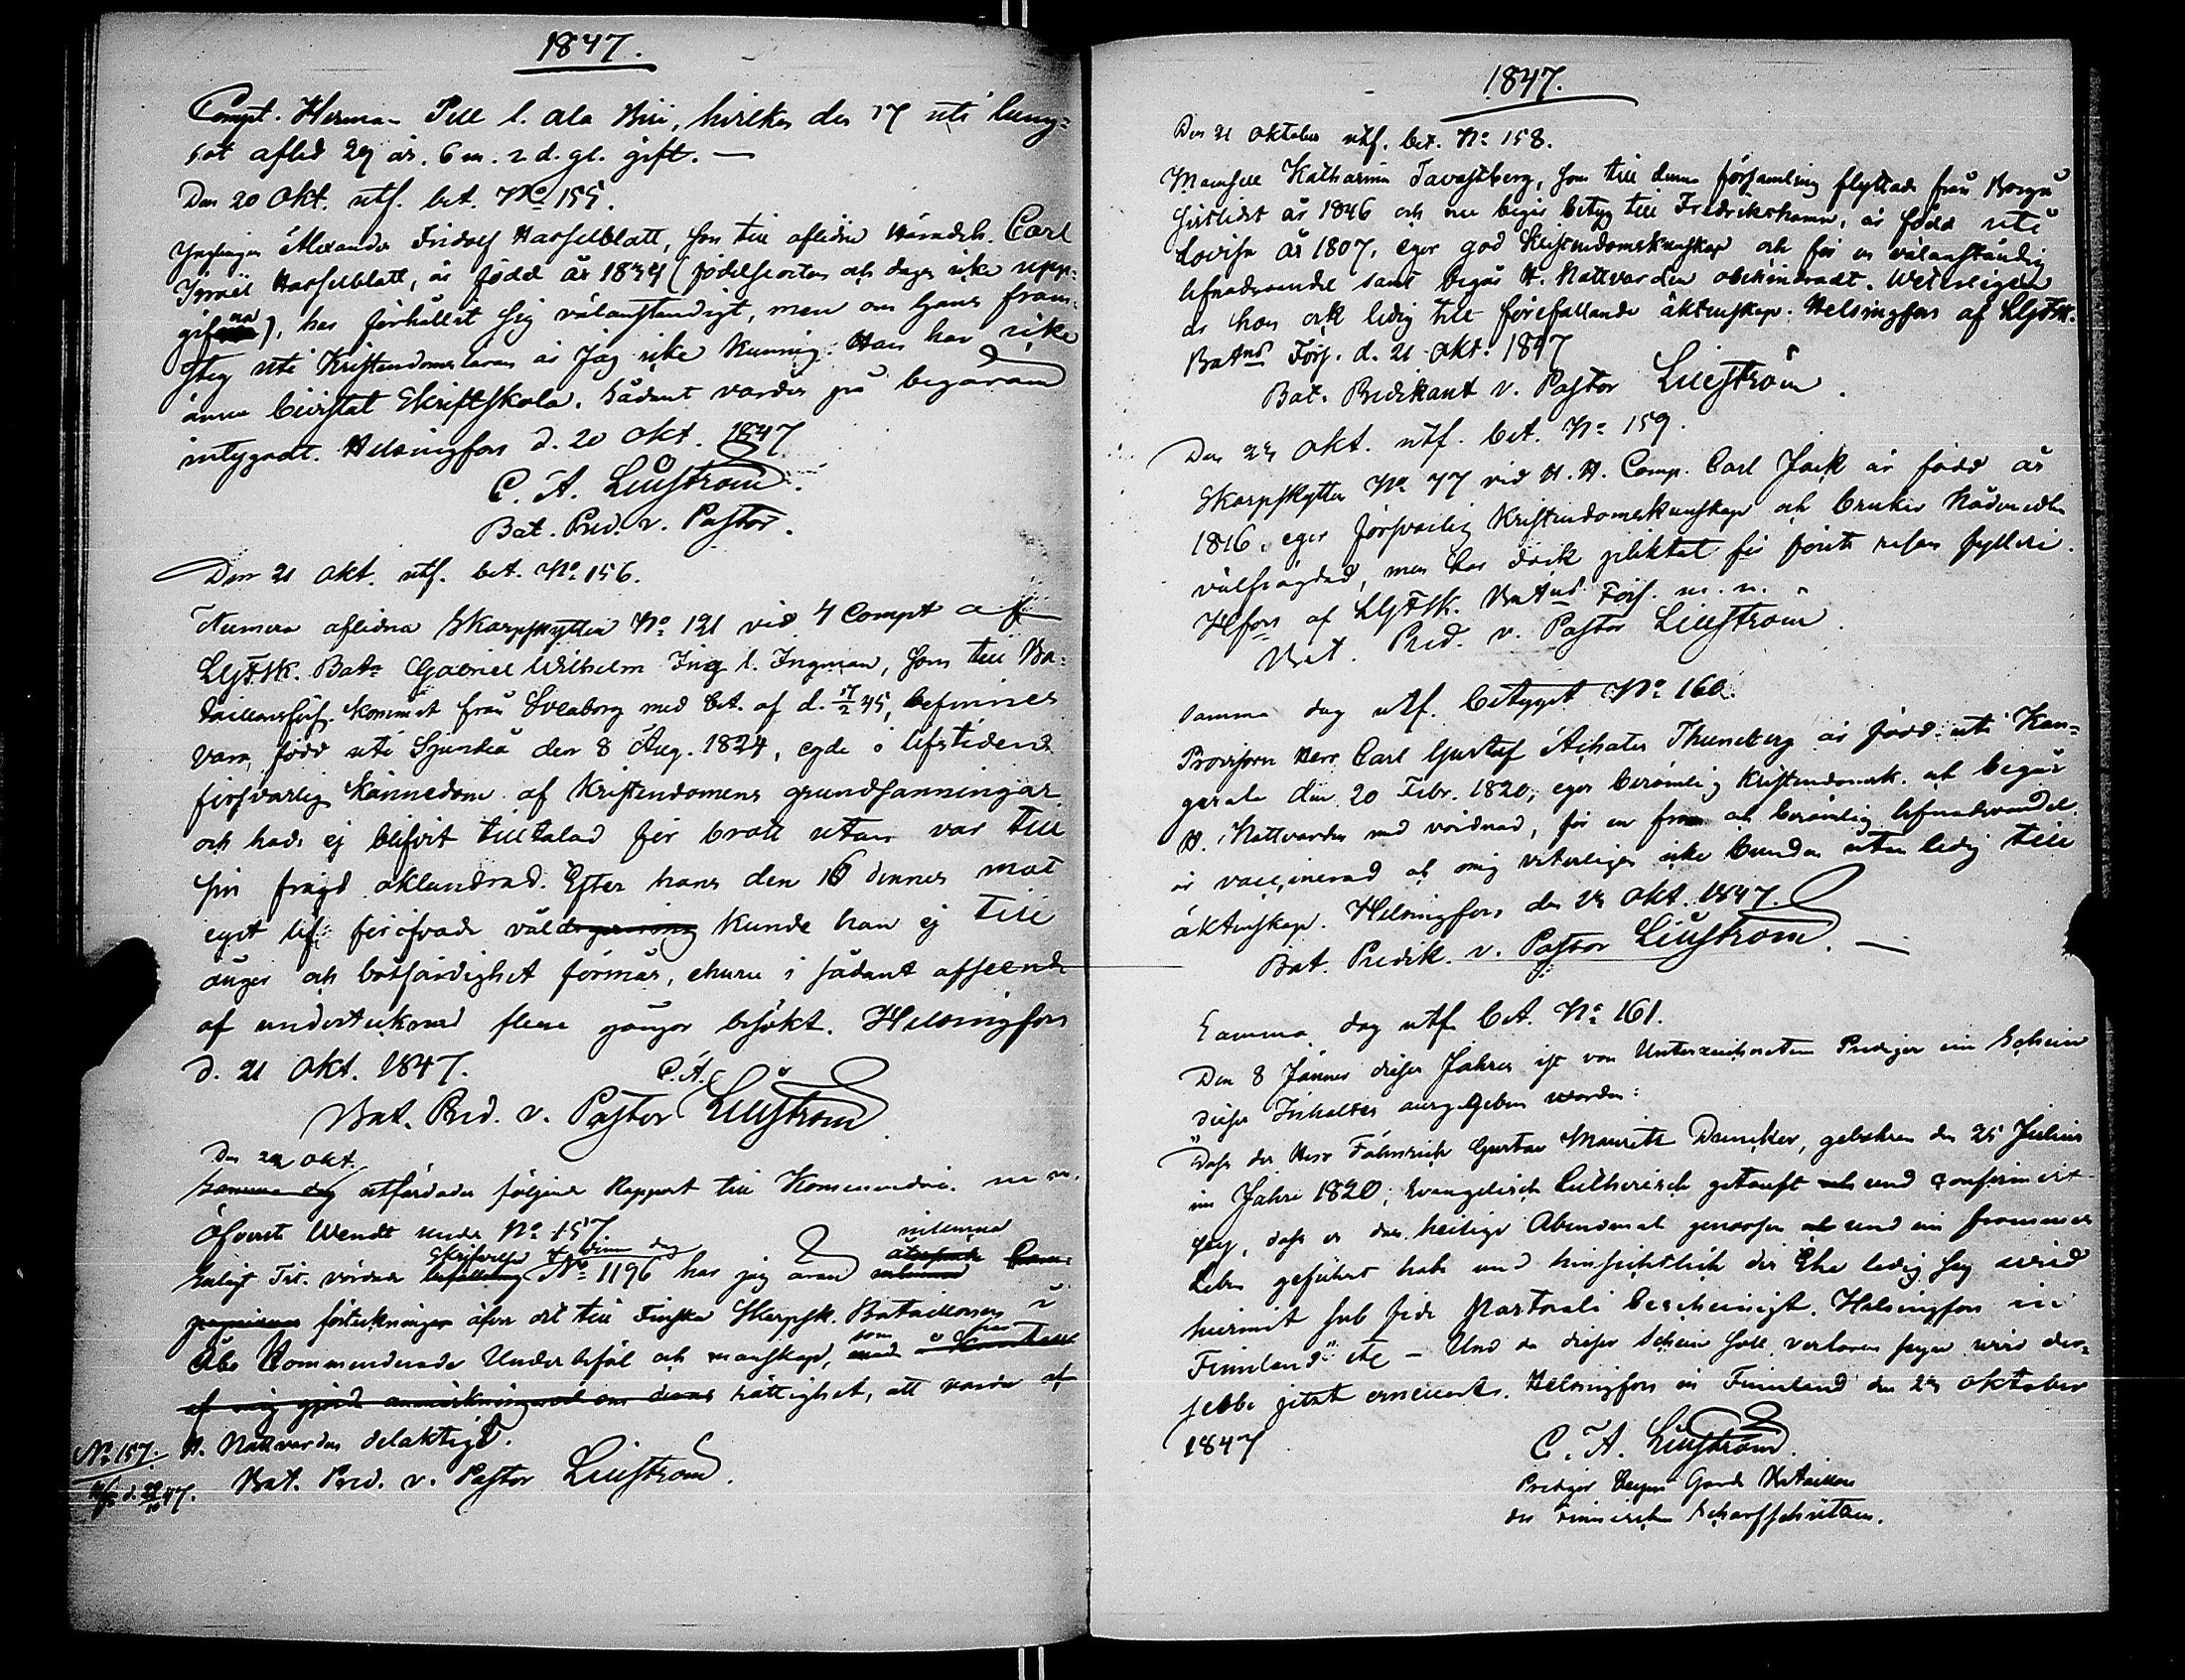 1847.
Compt. Herman Pell l. ala Biii, hvilken den 17 uti lung-
sot afled 29 år. 6 m. 2 d. gl. gift. —
Den 20 Okt. utf. bet. No 155.
Ynglingen Alexander Fridolf Hasselblatt, son till aflidne Häradsh. Carl
Israël Hasselblatt, är född år 1834 (födelseorten och dagen icke upp-
gifna), har förhållit sig välanständigt, men om hans fram-
steg uti Kristendomsläran är jag icke kunnig. Han har icke
ännu bevistat Skriftskola. Sådant varder på begäran
intygadt. Helsingfors d. 20 Okt. 1847
C. A. Liliström.
Bat. Pred. v. Pastor.
Den 21 Okt. utf. bet. No 156.
Numera aflidna Skarpskytten No 121 vid 4 Compt af
LGFSk. Batn Gabriel Wilhelm Ing l. Ingman, som till Ba-
taillonsförs. kommit från Sveaborg med bet. af d. 17/2 45, befinnes
vara född uti Sjundeå den 8 Aug. 1824, egde i lifstiden
försvarlig kännedom af Kristendomens grundsanningar
och hade ej blifvit tilltalad för brott utan var till
sin frägd oklandrad. Efter hans den 16 dennes mot
eget lif föröfvade våld kunde han ej till
ånger och botfärdighet förmås, ehuru i sådant afseende
af undertecknad flere gånger besökt. Helsingfors
d. 21 Okt. 1847.
C. A.
Bat. Pred. v. Pastor Liliström
Den 21 Okt.
Samma dag utfärdades följande Rapport till Kommendör. m. m.
Öfverst Wendt under No 157.
Skrifvelse denne dag inlemna
Enligt Tit. värdnad befallning No 1196 har jag äran
förteckningen öfver det till Finska Skarpsk. Bataillonen i
Åbo Kommenderade Underbefäl och manskap, som
af mig gjord anmärkning om deras rättighet, att varda af
No 157. H. Nattvarden delaktigt.
Hfs d. 21/10 47. Bat. Pred. v. Pastor Liliström.
1847.
Den 21 Oktober utf. bet. No 158.
Mamsell Katharina Tavastberg, som till denna församling flyttade från Borgå
sistlidet år 1846 och nu begär betyg till Fredrikshamn, är född uti
Lovisa år 1807, eger god Kristendomskunskap och för en välanständig
lefnadsvandel samt begår H. Nattvarden obehindradt. Wetterligen
är hon ock ledig till förefallande äktenskap. Helsingfors af LGFSk.
Batns Förs. d. 21 Okt. 1847
Bat. Predikant v. Pastor Liliström.
Den 23 Okt. utf. bet. No 159.
Skarpskytten No 77 vid H. H. Comp. Carl Jack är född år
1816, eger försvarlig Kristendomskunskap och brukar Nådemedlen
välfrägdad, men har dock pliktat för första resan fylleri.
Hfors af LGFSk. Batns Förs. m. n.
Bat. Pred. v. Pastor Liliström.
Samma dag utf. betyget No 160.
Provisorn Herr Carl Gustaf Achates Thuneberg är född uti Kan-
gasala den 20 Febr. 1820, eger berömlig Kristendomsk. och begår
H. Nattvarden med vördnad, för en from och berömlig lefnadsvandel
är vaccinerad och mig veterligen icke bunden utan ledig till
äktenskap. Helsingfors den 23 Okt. 1847.
Bat. Predik. v. Pastor Liliström. —
Samma dag utf. bet. No 161.
Den 8 Jannes dieses Jahres ist von Unterzeichnetem Prediger ein Schein
dieses Inhaltes ausgegeben worden:
"Dass der Herr Fähnrich Gustav Mauritz Duncker, gebohren den 25 Julius
im Jahre 1820, Evangelisch Lutherisch getauft und confirmirt
sey, dass er das heilige Abendmal genossen und ein frommes
Leben geführt habe und hinsichtlich der Ehe ledig sey wird
hiermit sub fide Pastorali bescheinigt. Helsingfors in
Finnland" etc — Und da dieser Schein soll verloren seyn wird der-
selbe jetzt erneuert. Helsingfors in Finnland den 23 Oktober
1847
C. A. Liliström.
Prediger beym Garde Bataillon
der Finnischen Scharfschützen.